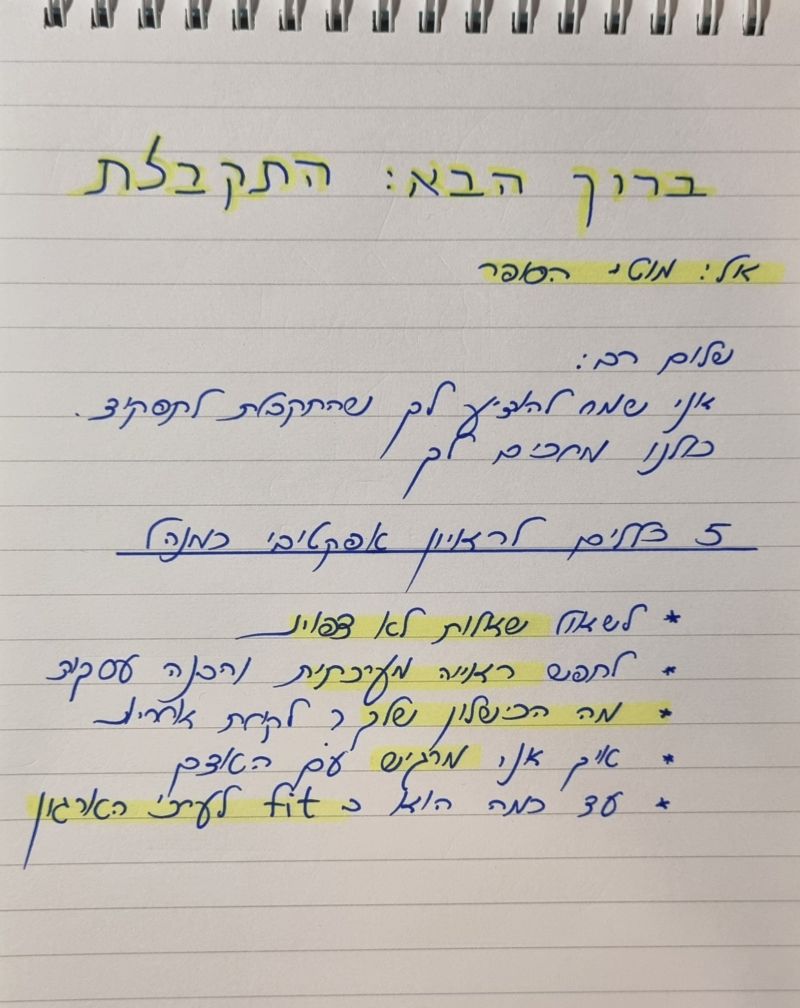 ברוך הבא: התקבלת
אל: מוטי הסופר
שלום רב:
אני שמח להודיע לך שהתקבלת לתפקיד.
כולנו מחכים לך
5 כללים לראיון אפקטיבי כמנהל
* לשאול שאלות לא צפויות
* לחפש ראייה מערכתית והבנה עסקית
* מה הכישלון שלך לקיחת אחריות
* איך אני מרגיש עם האדם
* עד כמה הוא ב fit לערכי הארגון